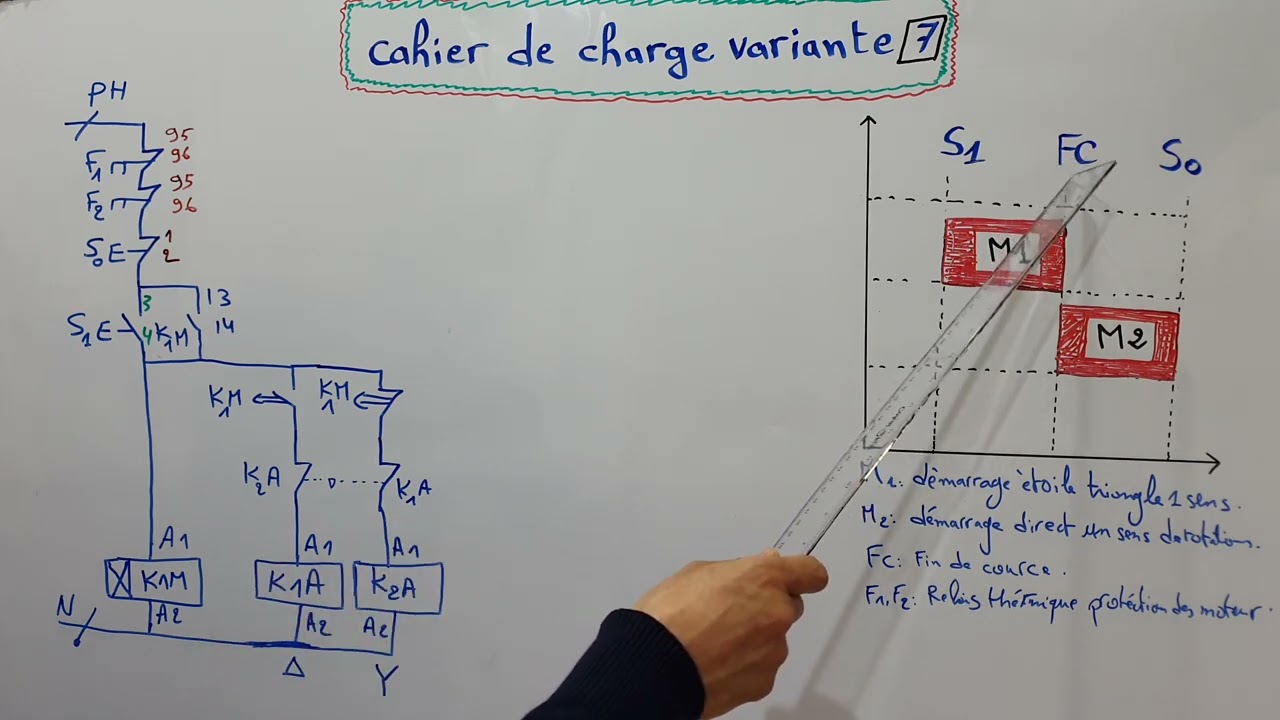 cahier de charge variante 7
PH
95
F1 96
95
F2 96
S0 E 1
2
3 13
S1 E 4 K1M 14
K1M K1M
K2A K1A
A1 A1 A1
K1M K1A K2A
N A2 A2 A2
Δ Y
S1 FC S0
M1
M2
M1: démarrage étoile triangle 1 sens.
M2: démarrage direct un sens de rotation.
Fc: Fin de cource.
F1, F2: Relais thérmique protéction des moteur.